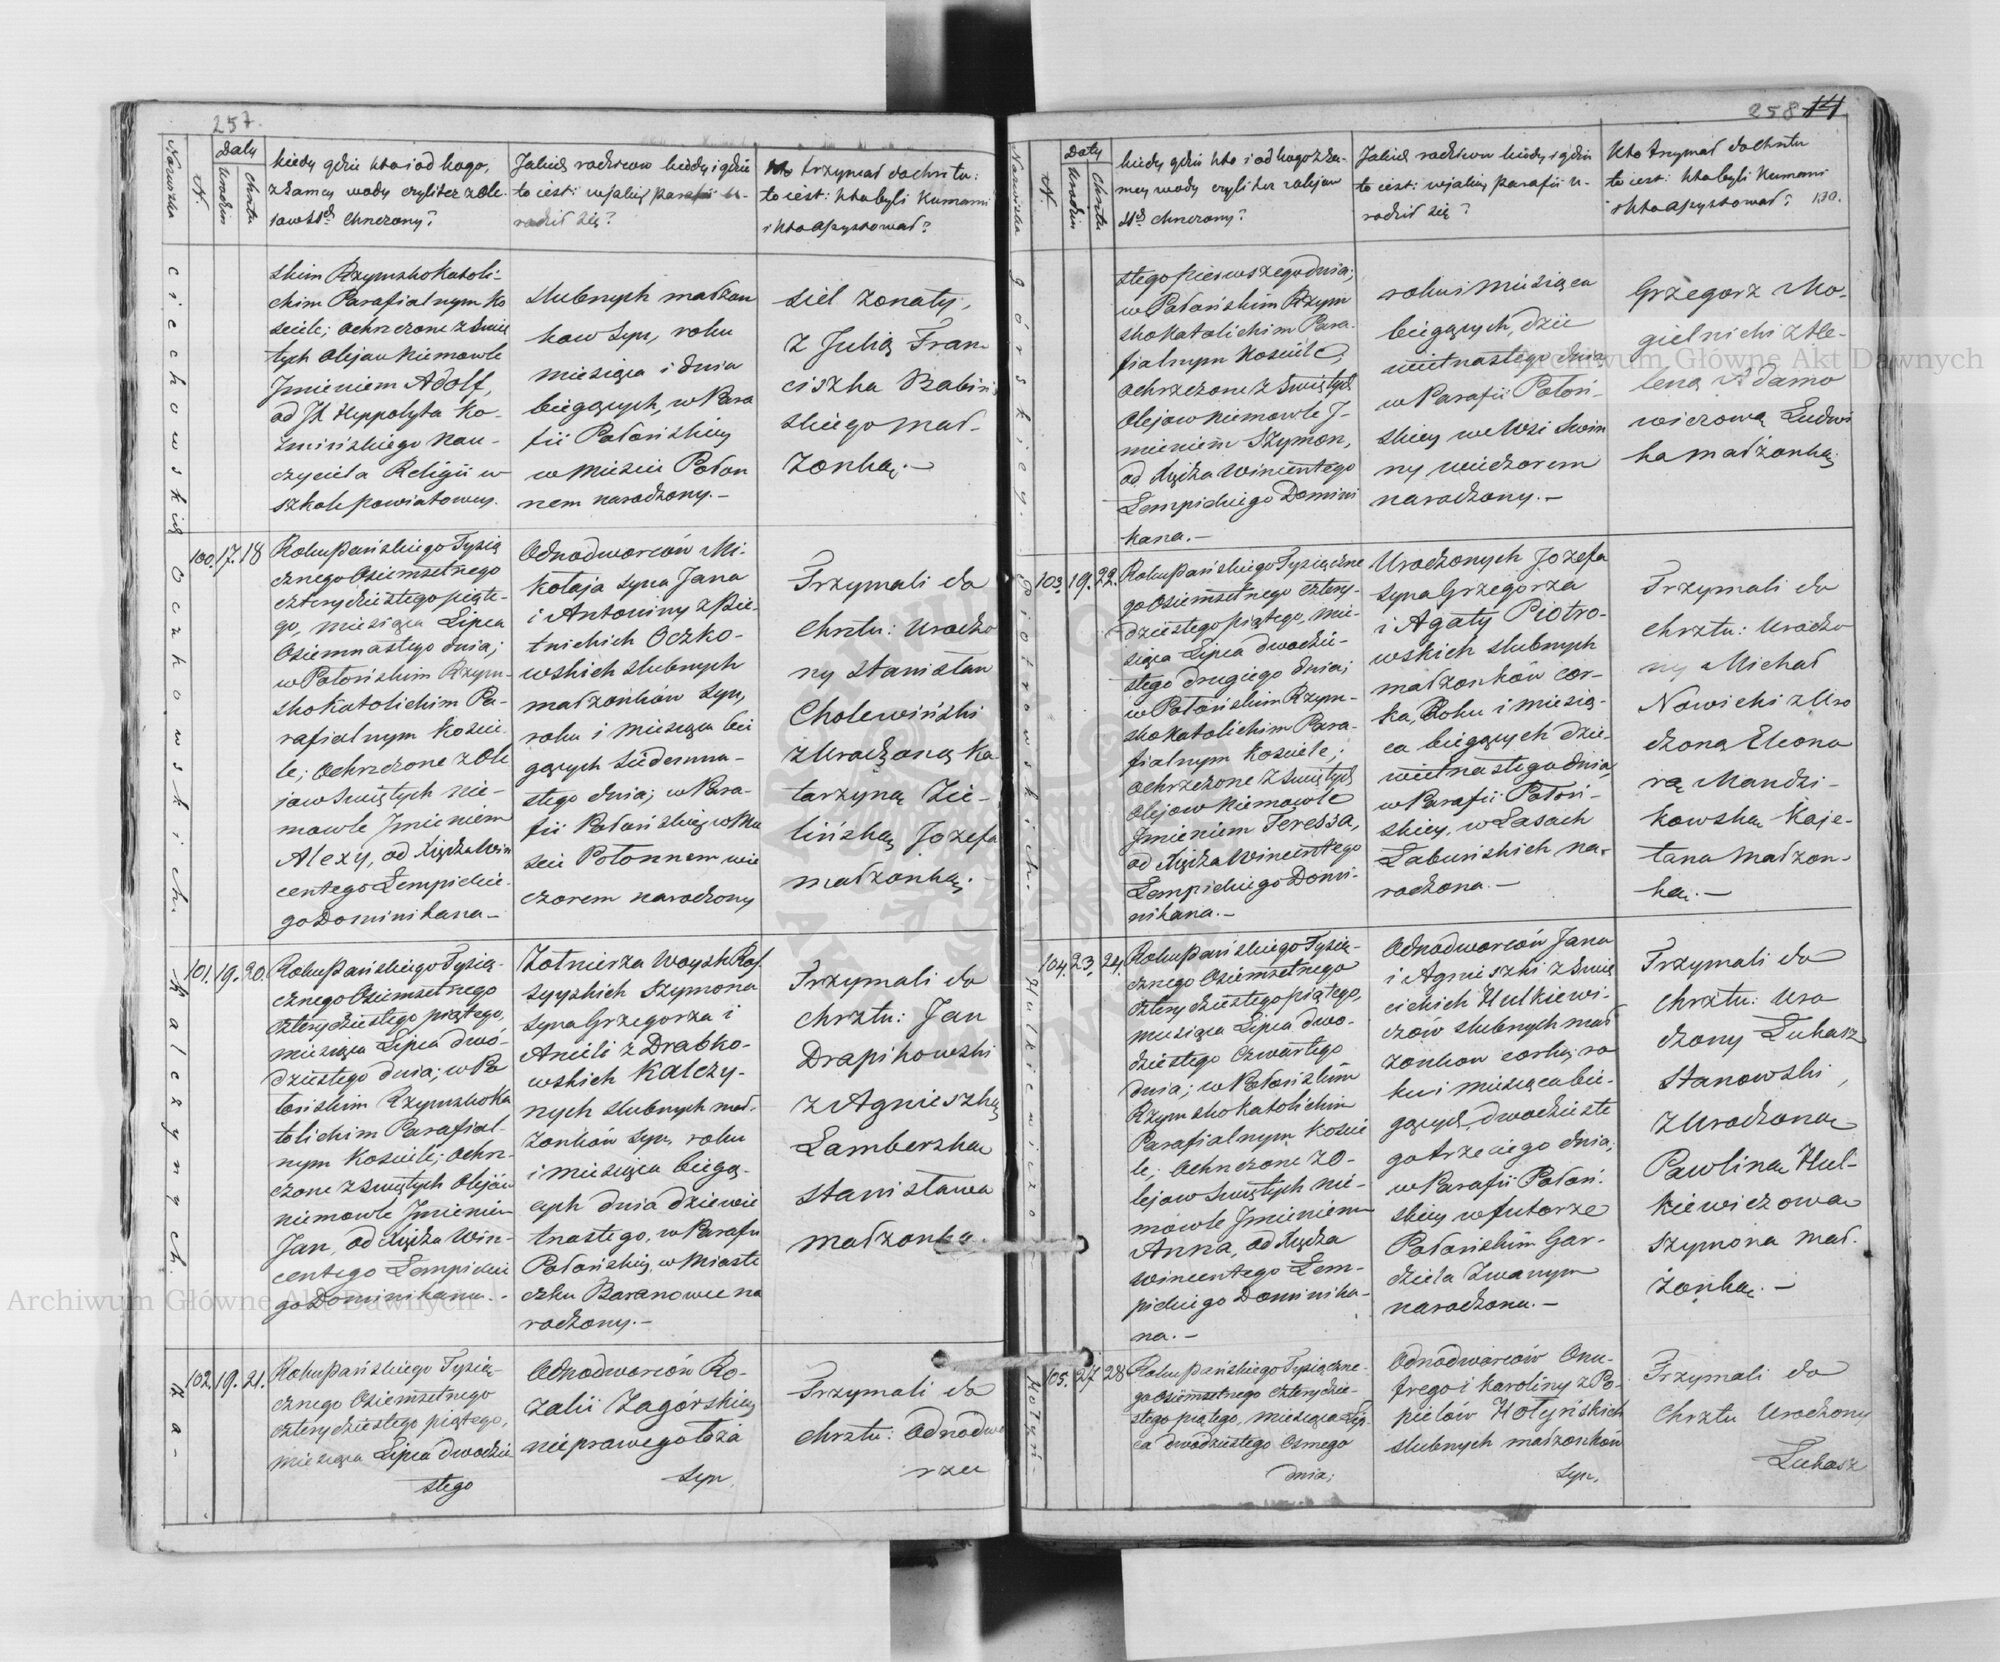 257.
Nazwiska
N.
Daty
Urodzin
Chrztu
kiedy gdzie kto i od kogo,
z samey wody czyli też z Ole-
jow SSch chrzczony?
Jakich rodzicow kiedy i gdzie
to iest: w jakiey parafii u-
rodził się?
Kto trzymał do chrztu:
to iest: kto byli Kumami
i kto assystował?
ciechowskich
skim Rzymsko Katoli-
ckim Parafialnym Ko
sciele; ochrzczone z Swię
tych Olejow niemowle
Jmieniem Adolf,
od JX Hyppolyta Ko-
zmińskiego Nau-
czyciela Religii w
szkole powiatowey.
slubnych małżon
kow Syn, roku
miesiąca i dnia
bieżących, w Para
fii Połońskiey
w Miescie Połon
nem narodzony.—
siel zonaty,
z Julią Fran
ciszka Babiń
skiego mał-
żonką.—
Oczkowskich.
100.
17.
18
Roku Pańskiego Tysią
cznego Osiemsetnego
czterydziestego piąte-
go, miesiąca Lipca
Osiemnastego dnia;
w Połońskim Rzym-
sko Katolickim Pa-
rafialnym Koscie-
le; ochrzczone z Ole
jow Swiętych nie-
mowle Jmieniem
Alexy, od Xiędza Win
centego Łempickie-
go Dominikana—
Odnodworców Mi-
kołaja syna Jana
i Antoniny z Pie-
tnickich Oczko-
wskich slubnych
małżonków Syn,
roku i miesiąca bie
gących siedemna-
stego dnia; w Para-
fii Połońskiey, w Mie
scie Połonnem wie
czorem narodzony
Trzymali do
chrztu: Urodzo
ny Stanisław
Cholewiński
z Urodzoną Ka
tarzyną Zie-
lińską Jozefa
małżonką.
Kalczynych.
101.
19.
20.
Roku Pańskiego Tysią-
cznego Osiemsetnego
czterydziestego piątego,
miesiąca Lipca dwó-
dziestego dnia; w Po
łońskim Rzymsko Ka
tolickim Parafial-
nym Kosciele; ochrz-
czone z Swiętych Olejów
niemowle Jmieniem
Jan, od Xiędza Win-
centego Łempickie
go Dominikana.-
Zołnierza Woysk Ros-
syyskich Szymona
syna Grzegorza i
Anieli z Drabko-
wskich Kalczy-
nych slubnych mał-
żonków Syn, roku
i miesiąca bieżą-
cych dnia dziewie
tnastego, w Parafii
Połońskiey, w Miaste
czku Baranowce na
rodzony.—
Trzymali do
chrztu: Jan
Drapikowski
z Agnieszką
Lamberską
Stanisława
małżonką.
Za-
102.
19.
21.
Roku Pańskiego Tysią-
cznego Osiemsetnego
czterydziestego piątego,
miesiąca Lipca dwodzie
stego
Odnodworców Ro-
zalii Zagórskiey
nieprawego łoża
Syn,
Trzymali do
chrztu: Odnodwo
rzec
258
Nazwiska
N.
Daty
Urodzin
Chrztu
kiedy gdzie kto i od kogo z sa-
mey wody czyli też z olejow
SSch chrzczony?
Jakich rodzicow kiedy i gdzie
to iest: w jakiey parafii u-
rodził się?
Kto trzymał do chrztu
to iest: kto byli Kumami
i kto assystował?
130.
górskiey.
stego pierwszego dnia;
w Połońskim Rzym
sko Katolickim Para-
fialnym Kosciele,
ochrzczone z Swiętych
Olejow niemowle J-
mieniem Szymon,
od Xiędza Wincentego
Łempickiego Domini
kana.—
roku i Miesiąca
bieżących, dzie
więtnastego dnia,
w Parafii Połoń-
skiey we Wsi Swin
ny wieczorem
narodzony.—
Grzegorz Mo-
gielnicki z He-
leną Adamo
wiczową Ludwi
ka małżonką.
Piotrowskich.
103.
19.
22.
Roku Pańskiego Tysiączne
go Osiemsetnego cztery-
dziestego piątego, mie-
siąca Lipca dwodzie-
stego drugiego dnia;
w Połońskim Rzym-
sko Katolickim Para-
fialnym Kosciele;
ochrzczone z Swiętych
Olejow Niemowle
Jmieniem Teressa,
od Xiędza Wincentego
Łempickiego Domi-
nikana.—
Urodzonych Jozefa
syna Grzegorza
i Agaty Piotro-
wskich slubnych
małżonków cor-
ka, Roku i miesią-
ca bieżących dzie-
więtnastego dnia,
w Parafii Połoń-
skiey, w Lasach
Łabuńskich na-
rodzona.—
Trzymali do
chrztu: Urodzo
ny Michał
Nowicki z Uro
dzoną Eleono
rą Mandzi-
kowską Kaje-
tana małżon-
ką.—
Hulkiewiczow.
104.
23.
24.
Roku Pańskiego Tysią-
cznego Osiemsetnego
czterydziestego piątego,
miesiąca Lipca dwo-
dziestego czwartego
dnia; w Połońskim
Rzymsko Katolickim
Parafialnym Koscie
le; ochrzczone z O-
lejow Swiętych nie-
mowle Jmieniem
Anna, od Xiędza
Wincentego Łem-
pickiego Dominika-
na.—
Odnodworców Jana
i Agnieszki z Swię
cickich Hulkiewi-
czów slubnych mał
żonkow corka; ro
ku i miesiąca bie-
gących, dwodzieste
go trzeciego dnia;
w Parafii Połoń-
skiey w futorze
Połońskim Gar-
dziela Zwanym
narodzona.—
Trzymali do
chrztu: Uro
dzony Łukasz
Stanowski,
z Urodzoną
Pawliną Hul-
kiewiczową
Szymona mał-
żonką.—
Hołyń-
105.
27.
28
Roku Pańskiego Tysiączne-
go Osiemsetnego czterydzie-
stego piątego, miesiąca Lip-
ca dwodziestego osmego
dnia;
Odnodworców Onu-
frego i Karoliny z Po-
pielów Hołyńskich
slubnych małżonków
Syn,
Trzymali do
Chrztu Urodzony
Łukasz
Archiwum Główne Akt Dawnych
Archiwum Główne Akt Dawnych